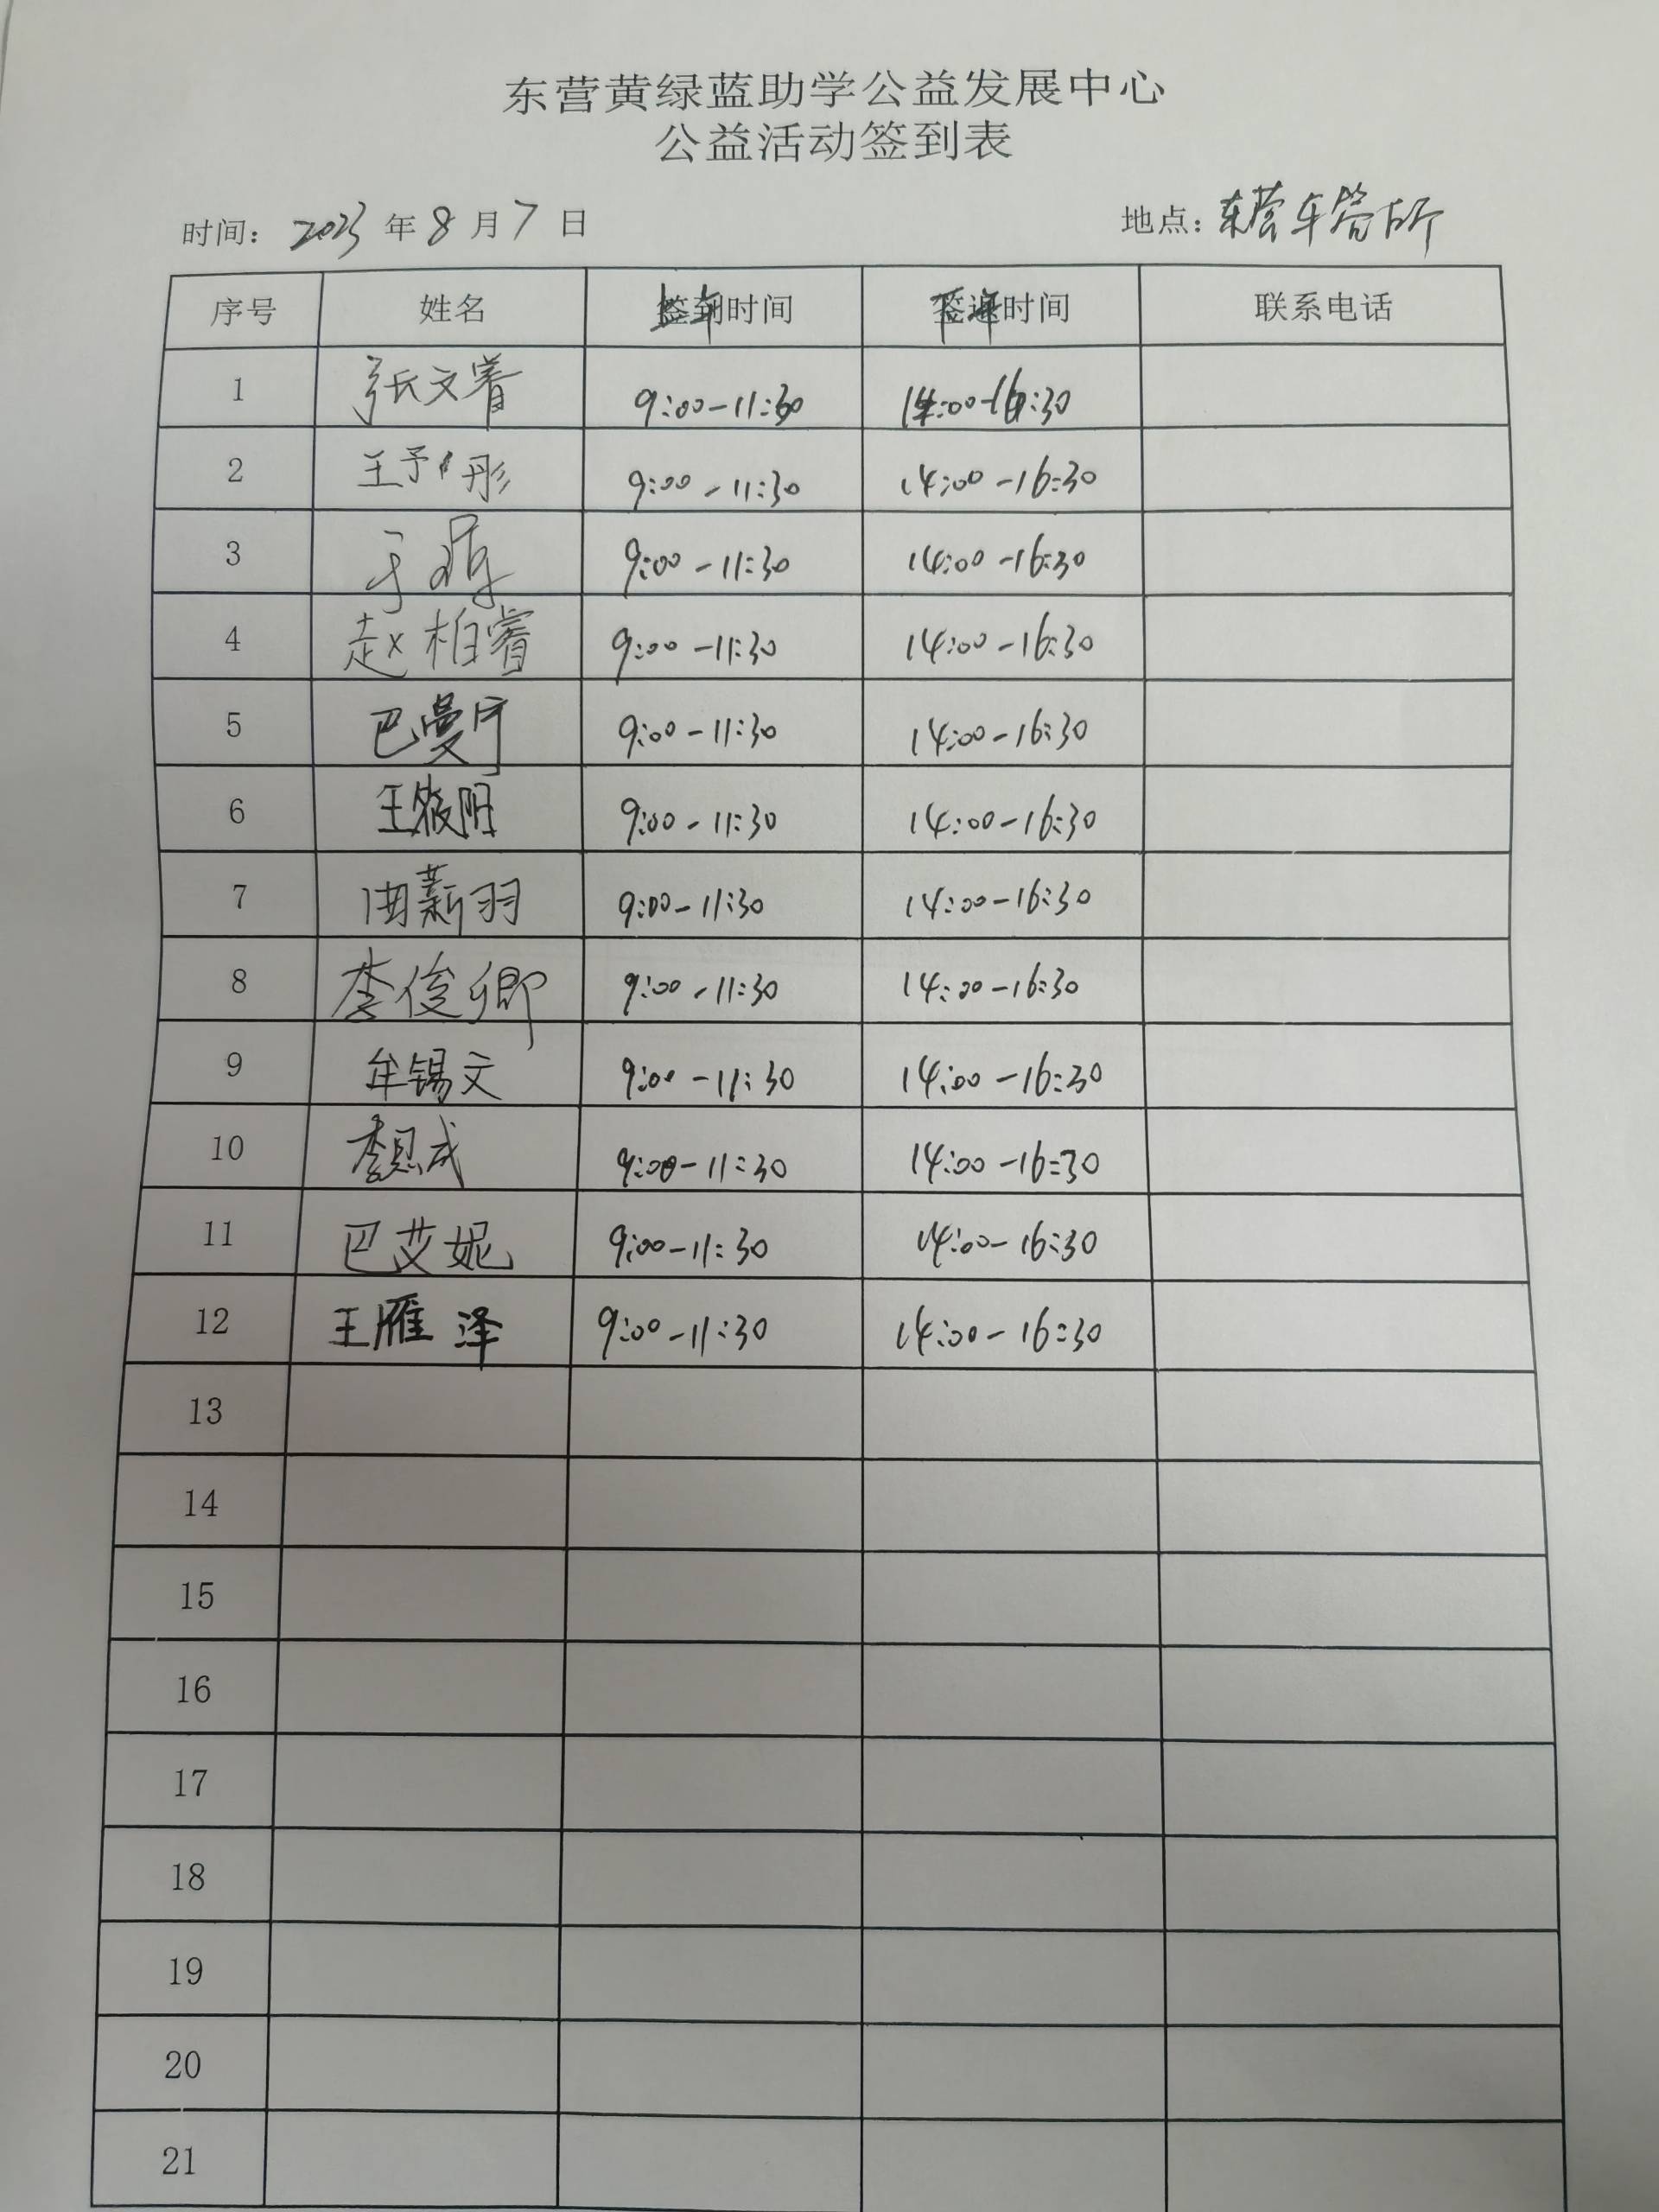 东营黄绿蓝助学公益发展中心
公益活动签到表
时间: 2023 年 8 月 7 日 地点: 东营车管所
序号 姓名 上午时间 下午时间 联系电话
1 张文睿 9:00-11:30 14:00-16:30
2 王予彤 9:00-11:30 14:00-16:30
3 于 9:00-11:30 14:00-16:30
4 赵柏睿 9:00-11:30 14:00-16:30
5 巴曼宁 9:00-11:30 14:00-16:30
6 王筱阳 9:00-11:30 14:00-16:30
7 曲薪羽 9:00-11:30 14:00-16:30
8 李俊卿 9:00-11:30 14:00-16:30
9 牟锡文 9:00-11:30 14:00-16:30
10 李思成 9:00-11:30 14:00-16:30
11 巴艾妮 9:00-11:30 14:00-16:30
12 王雁泽 9:00-11:30 14:00-16:30
13
14
15
16
17
18
19
20
21